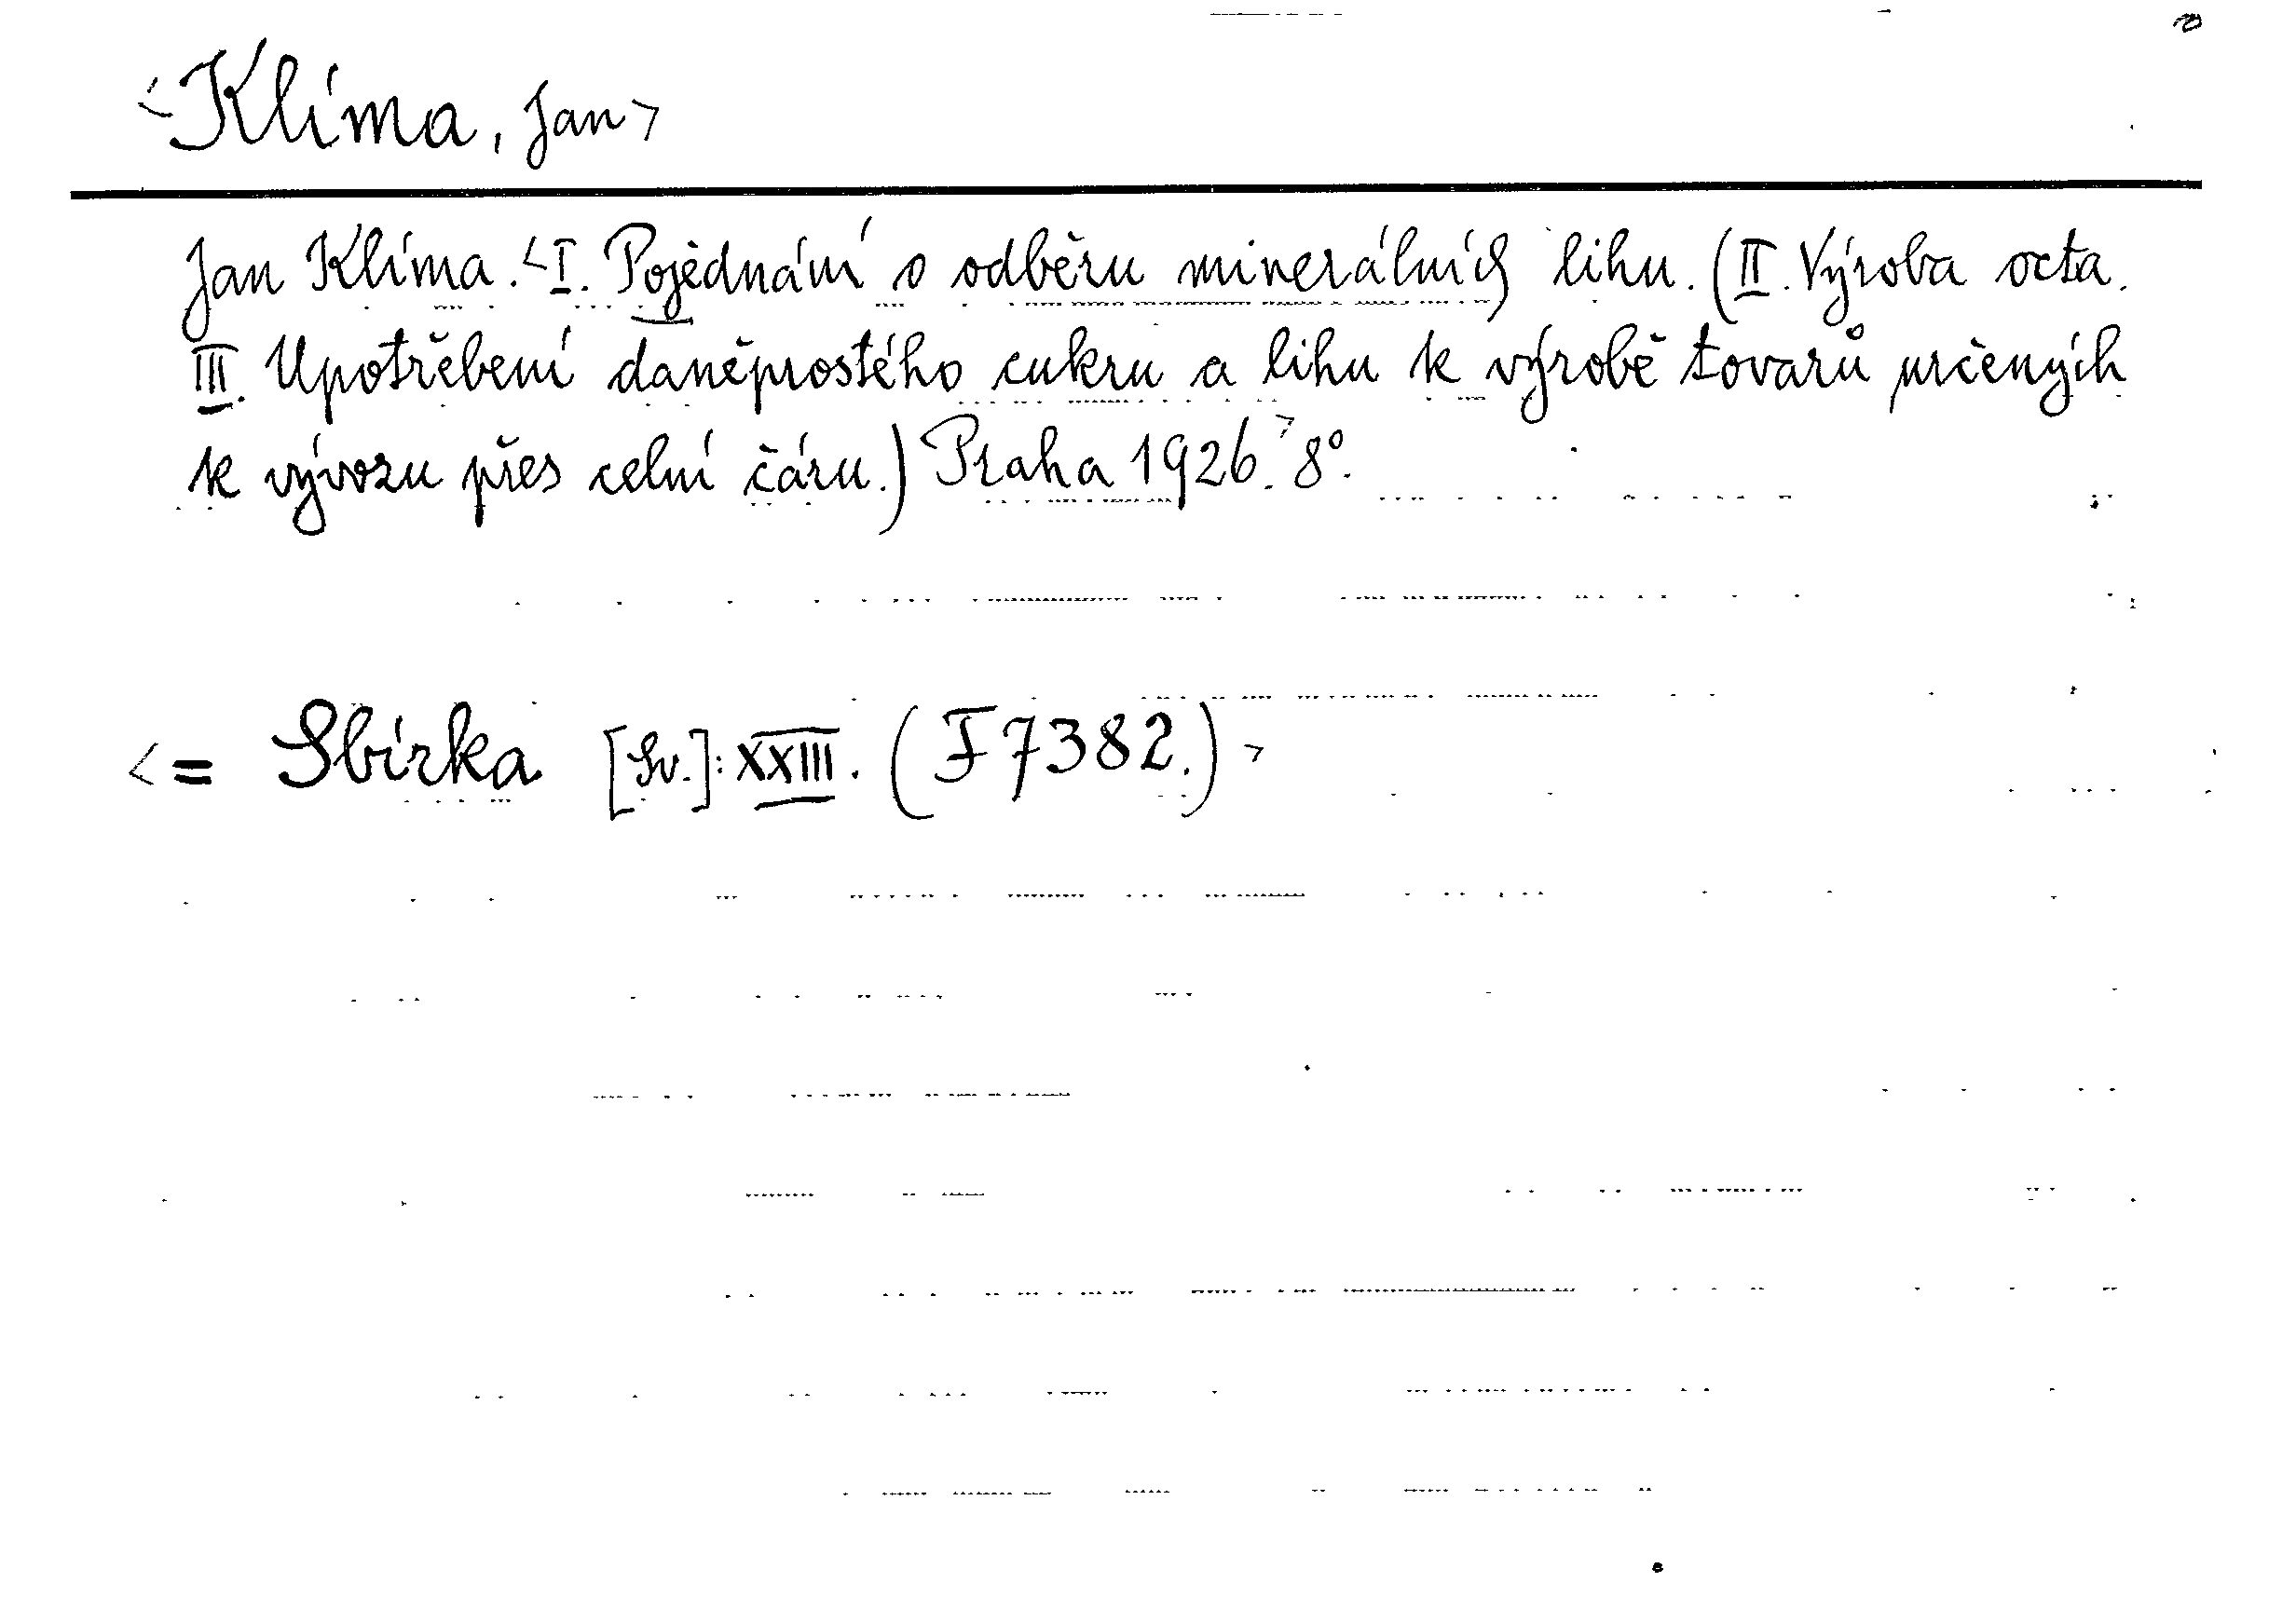 <Klíma, Jan>
Jan Klíma. <I. Pojednání o odběru minerálních lihu. (II. Výroba octa.
III. Upotřebení daněprostého cukru a lihu k výrobě tovarů určených
k vývozu přes celní čáru.) Praha 1926.> 8°.
<= Sbírka [Sv.]: XXIII. (F 7382.)>